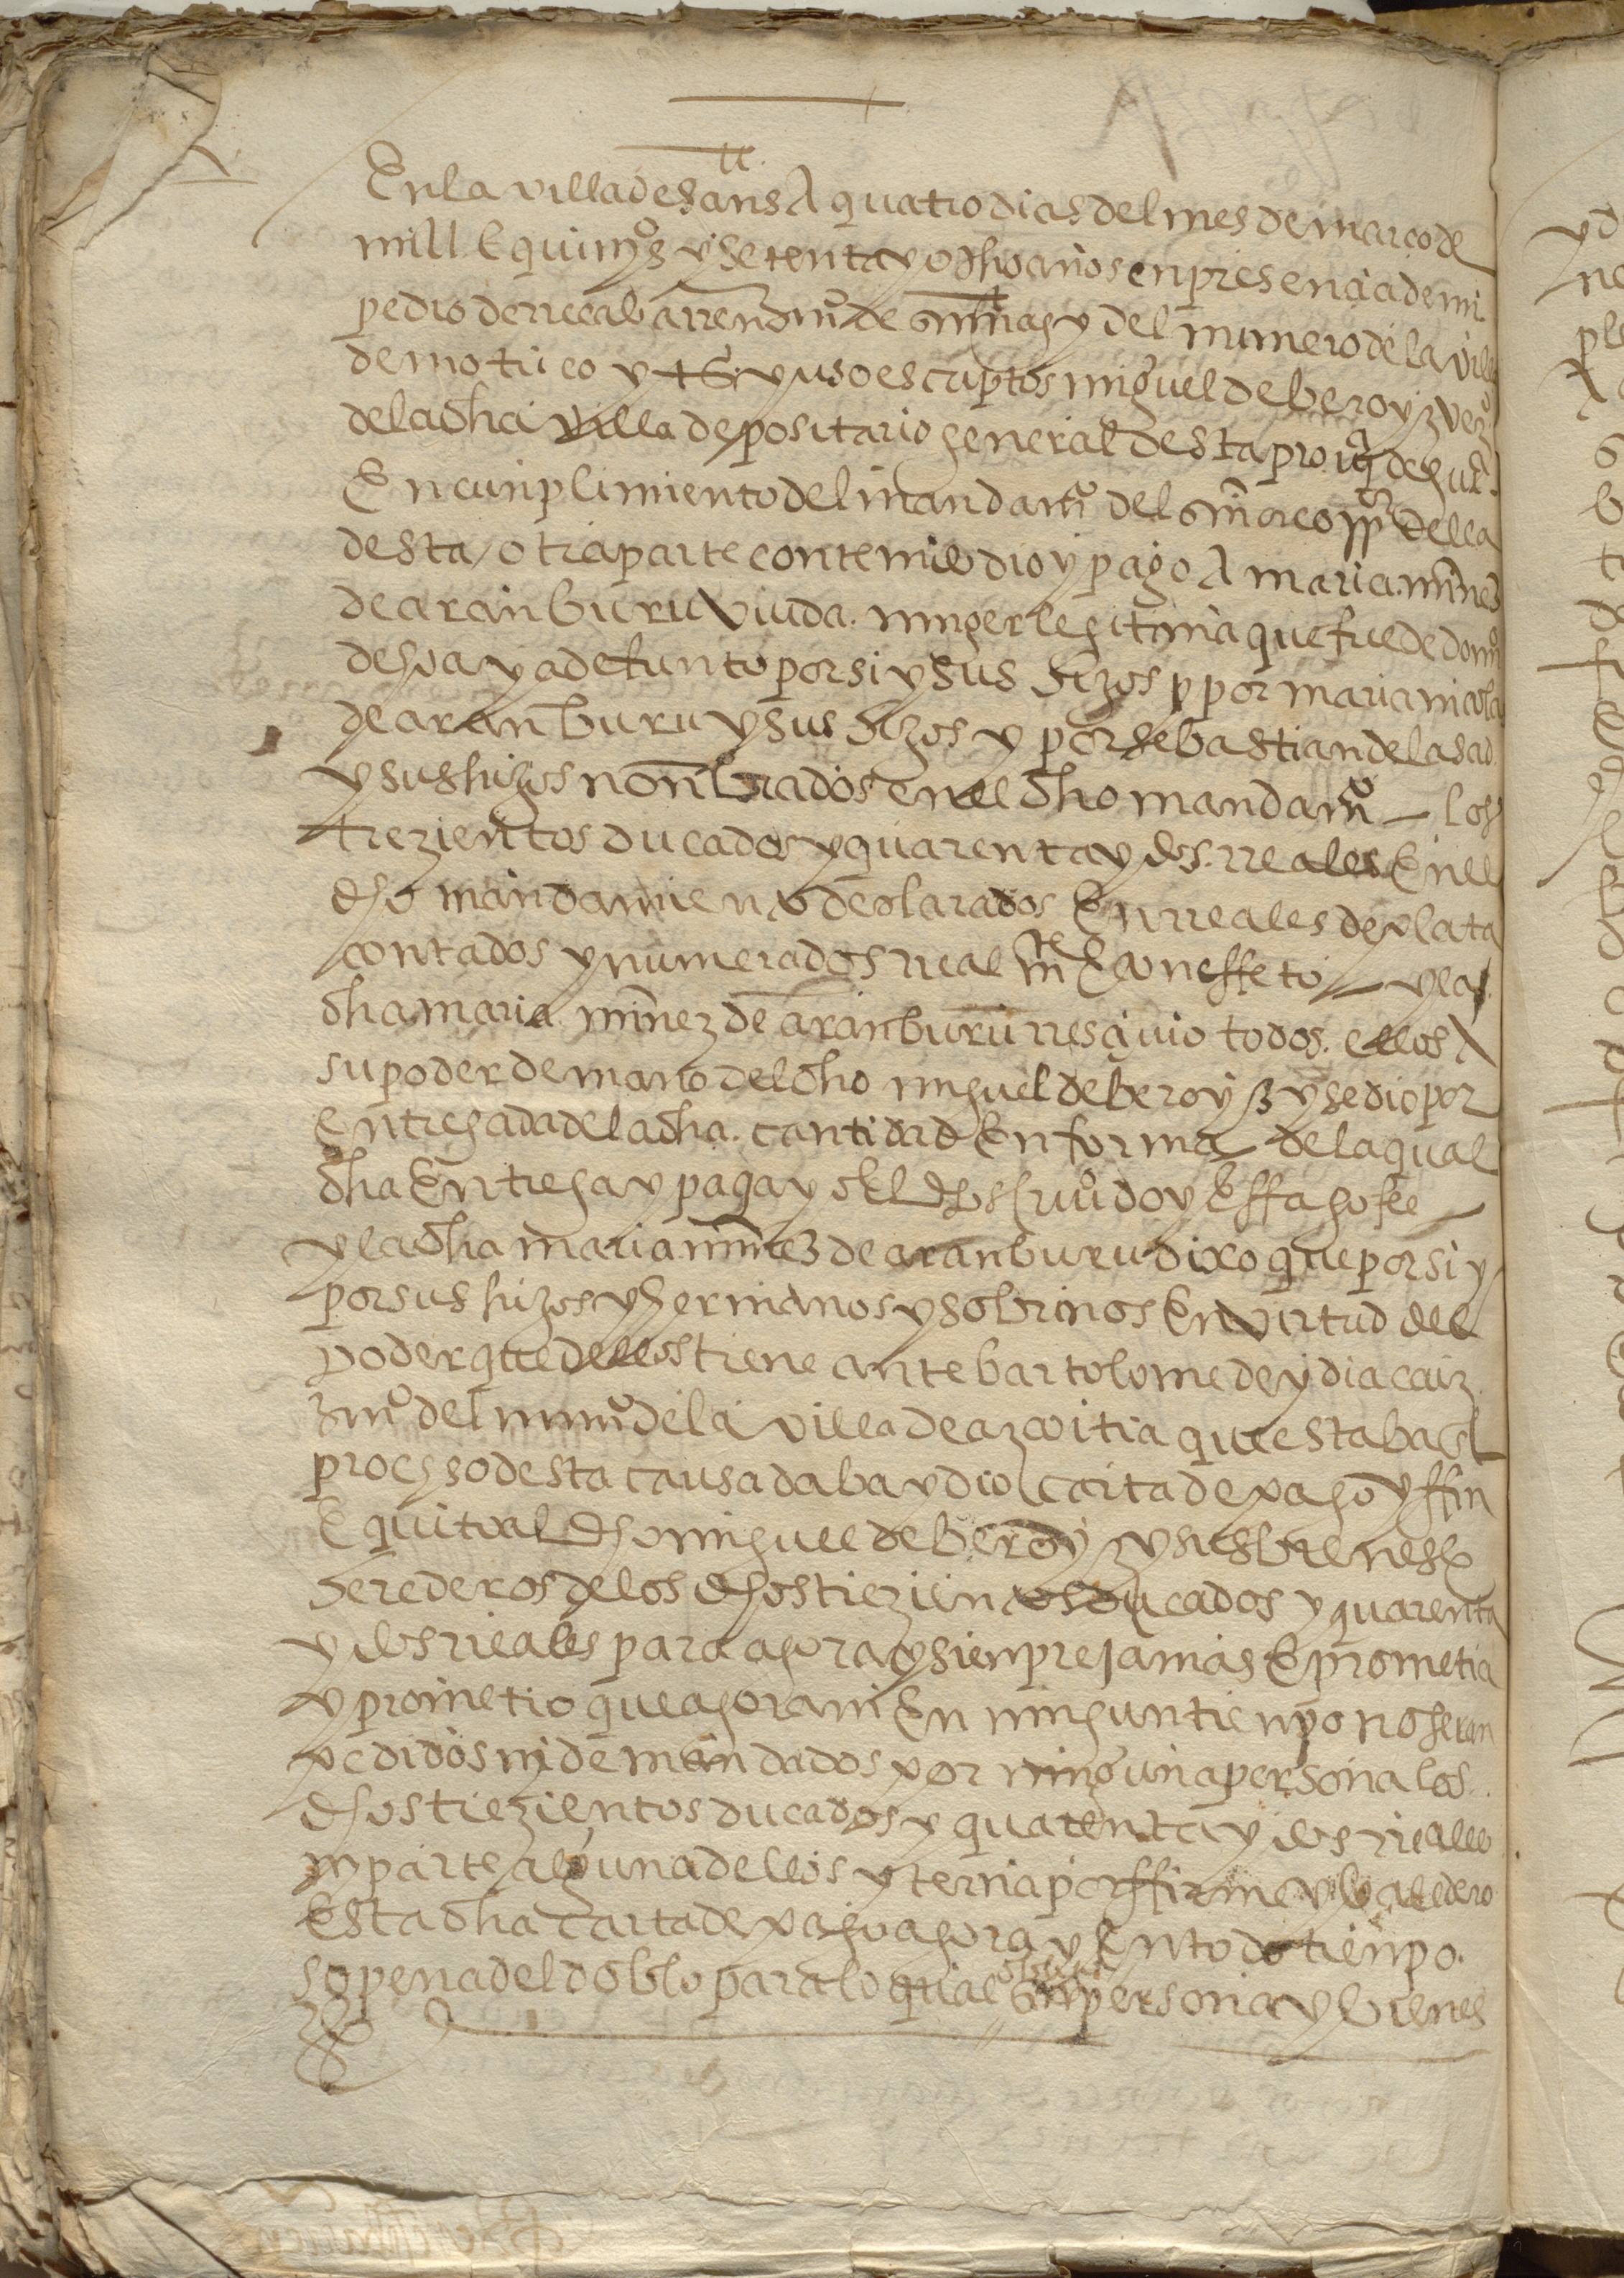 En la villa de sans A quatro dias del mes de março de
mill E quiºs y setenta y ocho años en presençia de mi
pedro de rrecabarren s̃nº de su magt y del numero de la villa
de motrico y tsº yuso escriptos miguel de beroyz vezº
de la dha villa depositario general desta proia de guᵖᵃ
En cunplimiento del mandamº del señor corregᵒʳ della
desta otra parte contenido dio y pago A maria mr̃nez
de aranburu viuda muger legitima que fue de domº
de goayadefunto por si y sus hijos y por maria nicolas
de aranburu y sus hijos y por sebastian de lasao
y sus hijos nonbrados en el dho mandamº – los
trezientos ducados y quarenta y dos rreales En el
dho mandamiento declarados En rreales de plata
contados y numerados realmte E con effeto – y la
dha maria mr̃nez de aranburu rresçiuio todos ellos A
su poder de mano del dho miguel de beroyz y se dio por
entregada de la dha cantidad En forma – de la qual
dha Entrega y paga yo El dho s̃criuº doy E ffago fee –
y la dha maria mr̃nez de aranburu dixo que por si y
por sus hijos y hermanos y sobrinos En virtud del
poder que dellos tiene ante bartolome de ydiacaiz
s̃nº del numº de la villa de azcoitia que estaba En El
proçesso desta causa daba y dio carta de pago y ffin
E quito al dho miguel de beroyz y sus bienes E
herederos de los dhos trezientos ducados y quarenta
y dos rreales para agora y sienpre jamas E prometia
y prometio que agora ni En ningun tienpo no seran
pedidos ni demandados por ninguna persona los
dhos trezientos ducados y quarenta y dos rreales
ni parte alguna dellos y ternia por ffirme y baledero
Esta dha carta de pago agora y En todo tienpo
so pena del doblo para lo qual obligo su persona y bienes